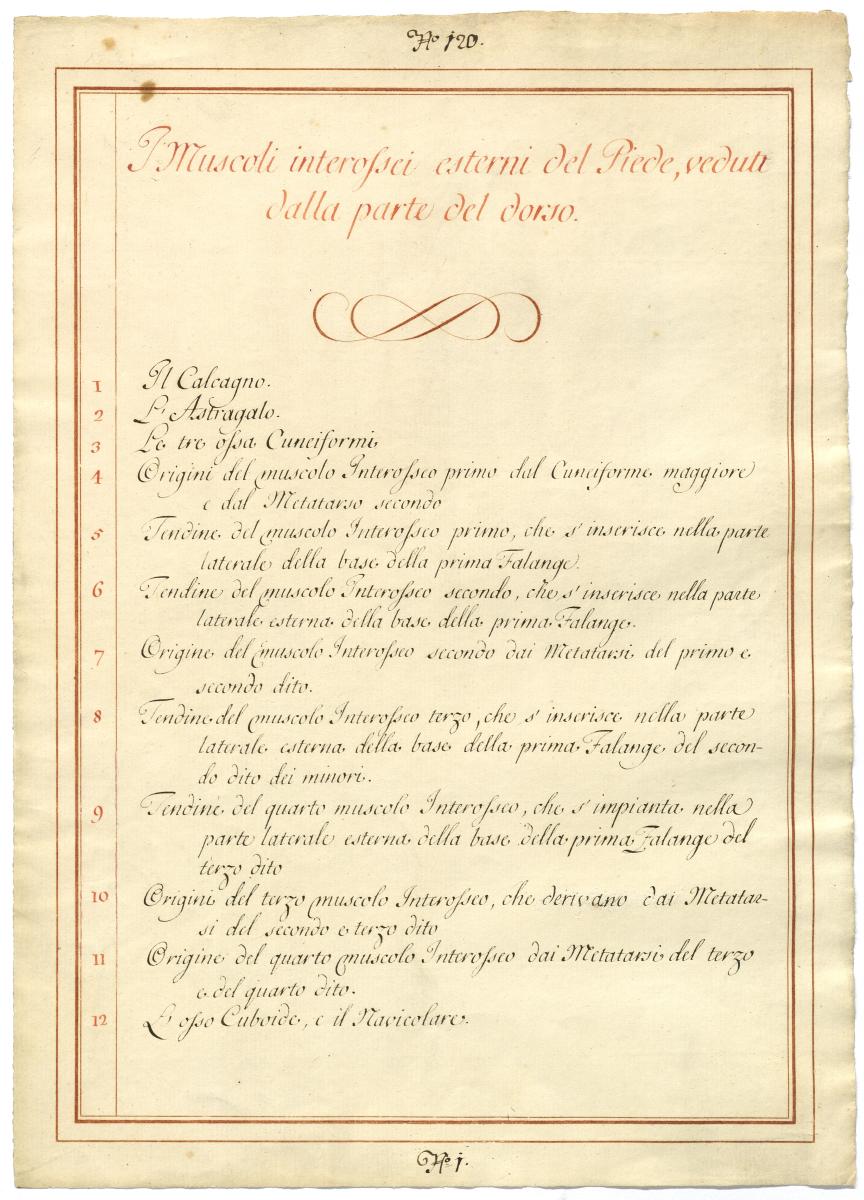 Nº 120.
I Muscoli interossei esterni del Piede, veduti
dalla parte del dorso.
1 Il Calcagno.
2 L'Astragalo.
3 Le tre ossa Cuneiformi
4 Origini del muscolo Interosseo primo dal Cuneiforme maggiore
e dal Metatarso secondo
5 Tendine del muscolo Interosseo primo, che s'inserisce nella parte
laterale della base della prima Falange.
6 Tendine del muscolo Interosseo secondo, che s'inserisce nella parte
laterale esterna della base della prima Falange.
7 Origine del muscolo Interosseo secondo dai Metatarsi del primo e
secondo dito.
8 Tendine del muscolo Interosseo terzo, che s'inserisce nella parte
laterale esterna della base della prima Falange del secon-
do dito dei minori.
9 Tendine del quarto muscolo Interosseo, che s'impianta nella
parte laterale esterna della base della prima Falange del
terzo dito
10 Origini del terzo muscolo Interosseo, che derivano dai Metatar-
si del secondo e terzo dito
11 Origine del quarto muscolo Interosseo dai Metatarsi del terzo
e del quarto dito.
12 L'osso Cuboide, e il Navicolare.
Nº 1.